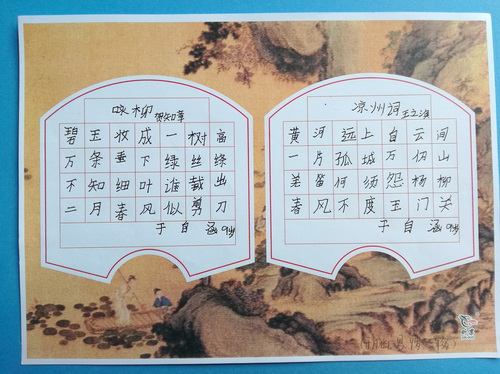 咏柳 贺知章
碧玉妆成一树高
万条垂下绿丝绦
不知细叶谁裁出
二月春风似剪刀
于自涵 9岁
凉州词 王之涣
黄河远上白云间
一片孤城万仞山
羌笛何须怨杨柳
春风不度玉门关
于自涵 9岁